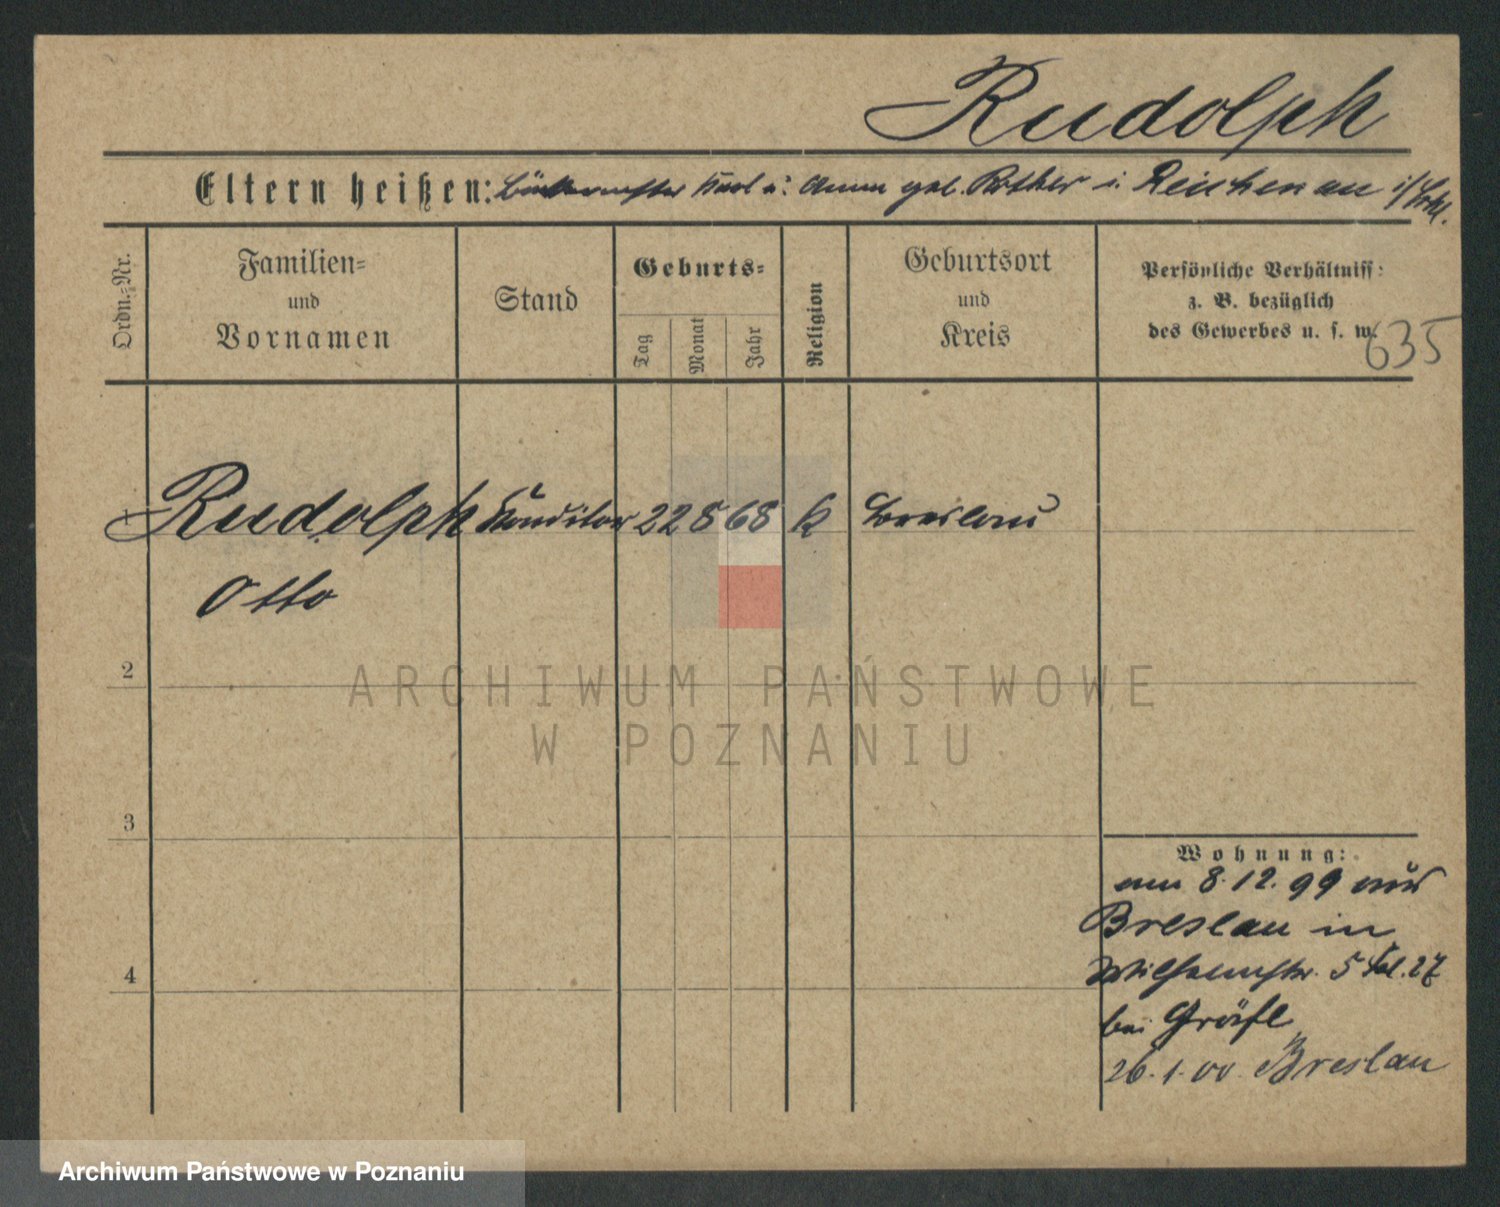 Rudolph
Eltern heißen: Bäckermstr Karl u. Anna geb. Rother i. Reichenau i/Schl.
Ordn.-Nr.
Familien-
und
Vornamen
Stand
Geburts-
Tag
Monat
Jahr
Religion
Geburtsort
und
Kreis
Persönliche Verhältniss:
z. B. bezüglich
des Gewerbes u. s. w.
635
1 Rudolph Konditor 22 8 68 k Breslau
Otto
2
ARCHIWUM PAŃSTWOWE
W POZNANIU
3
Wohnung:
am 8.12.99 aus
Breslau in
Wilhelmstr. 5 27
bei Gräfe
4
26.1.00 Breslau
Archiwum Państwowe w Poznaniu